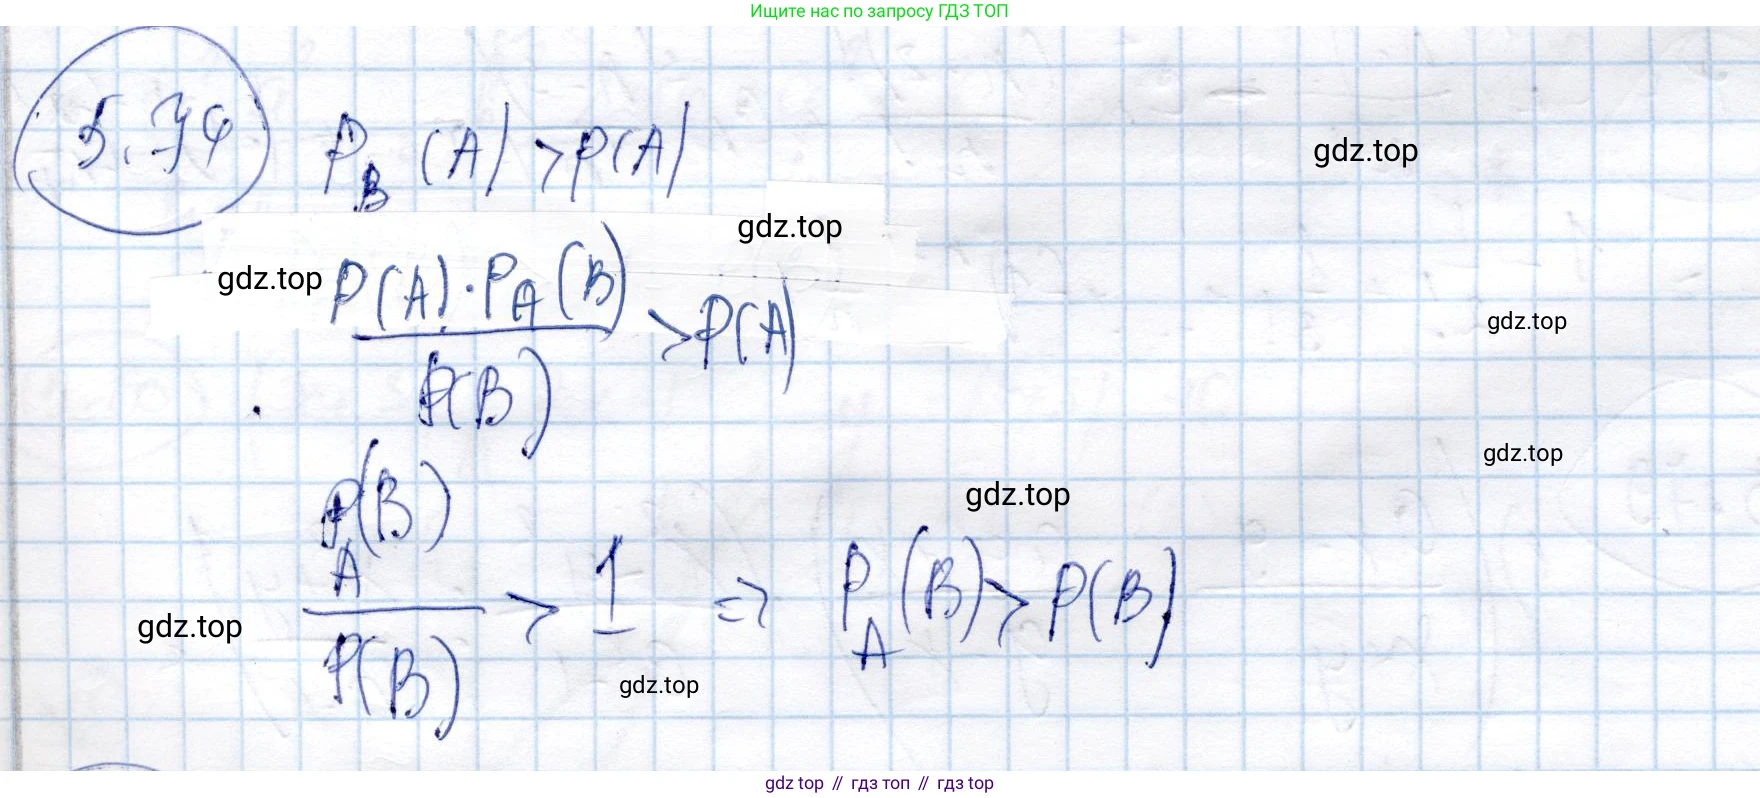 Ищите нас по запросу ГДЗ ТОП
5.74 P_B (A) > P(A)
gdz.top
gdz.top
gdz.top P(A) · P_A (B) / P(B) > P(A)
gdz.top
gdz.top
gdz.top
P_A(B) / P(B) > 1 => P_A (B) > P(B)
gdz.top
gdz.top
gdz top // гдз топ // гдз top